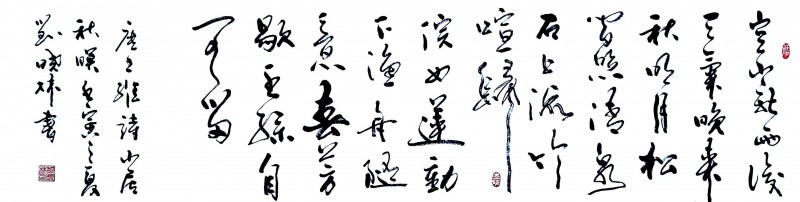 空山新雨後
天氣晚來
秋明月松
間照清泉
石上流竹
喧歸
浣女蓮動
下漁舟隨
意春芳
歇王孫自
可留
唐王維詩山居
秋暝壬寅之夏
書